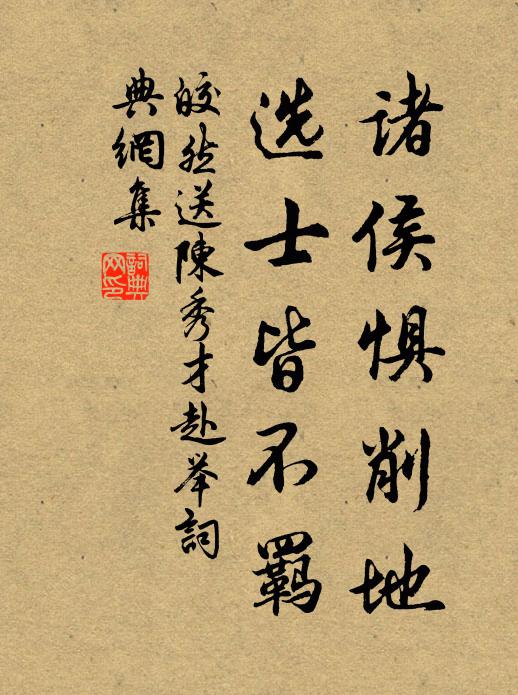 诸侯惧削地
选士皆不羁
皎然送陳秀才赴举詞
典網集
詞典
网印